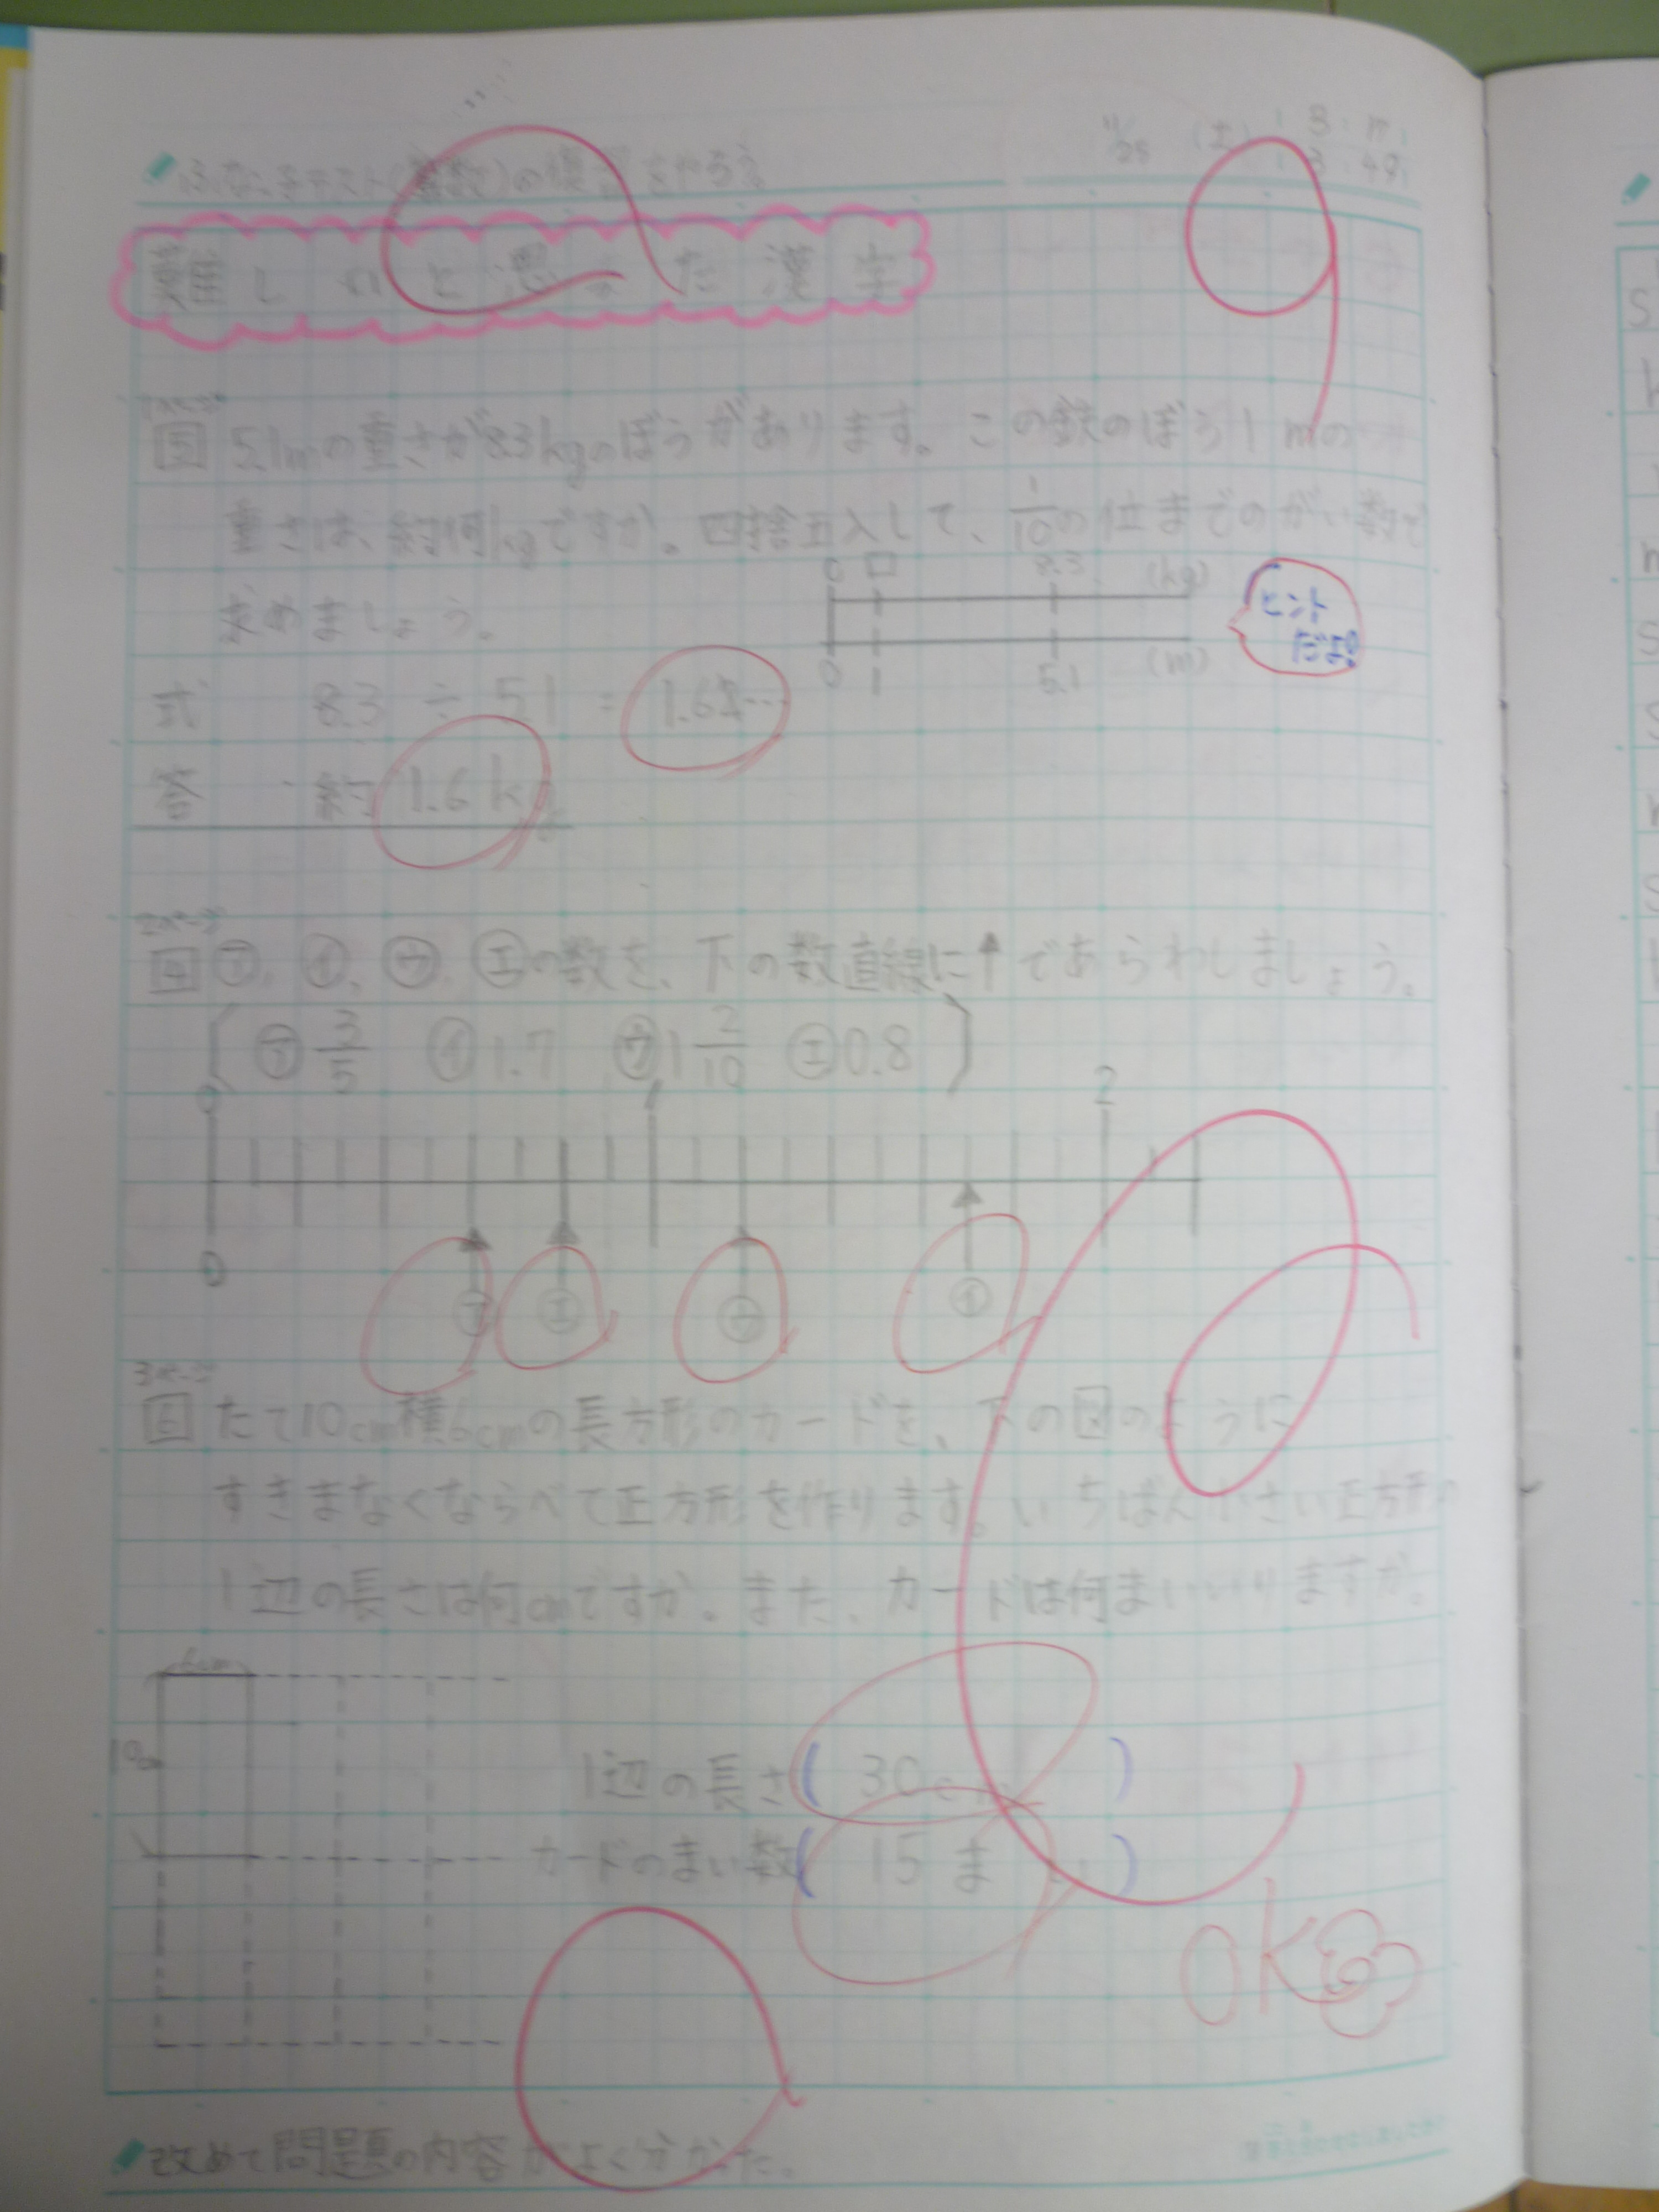 11/25 (土)
難しいと思った漢字
3 5.1mの重さが8.3kgのぼうがあります。この鉄のぼう1mの
重さは、約何kgですか。四捨五入して、1/10の位までのがい数で
求めましょう。
0 □ 8.3 (kg)
0 1 5.1 (m)
ヒント
だよ。
式 8.3 ÷ 5.1 =
答 約 1.6 kg
4 ㋐、㋑、㋒、㋓の数を、下の数直線に↑であらわしましょう。
㋐ 3/5 ㋑ 1.7 ㋒ 1 2/10 ㋓ 0.8
0 1 2
㋐ ㋓ ㋒ ㋑
6 たて10cm横6cmの長方形のカードを、下の図のように
すきまなくならべて正方形を作ります。いちばん小さい正方形の
1辺の長さは何cmですか。また、カードは何まいいりますか。
6cm
1辺の長さ( 30 )
カードのまい数( 15 ま )
OK
改めて問題の内容がよく分かった。